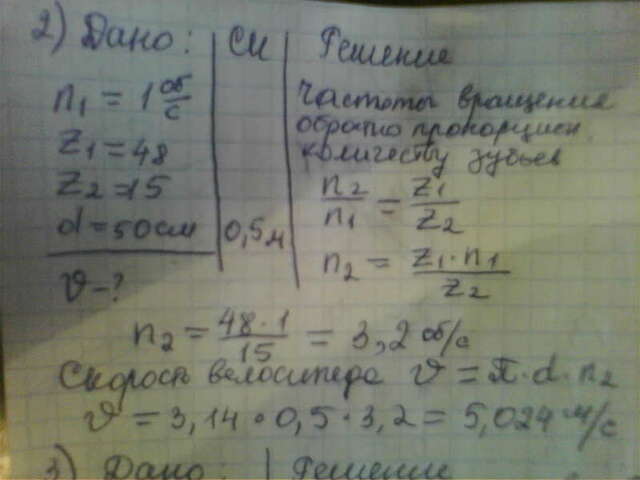 2) Дано: СИ Решение
n₁ = 1 об/с
Z₁ = 48
Z₂ = 15
d = 50 см 0,5 м
υ - ?
Частоты вращения
обратно пропорцион.
количеству зубьев
n₂/n₁ = Z₁/Z₂
n₂ = Z₁·n₁/Z₂
n₂ = 48·1/15 = 3,2 об/с
Скорость велосипеда υ = π·d·n₂
υ = 3,14·0,5·3,2 = 5,024 м/с
3) Дано: Решение